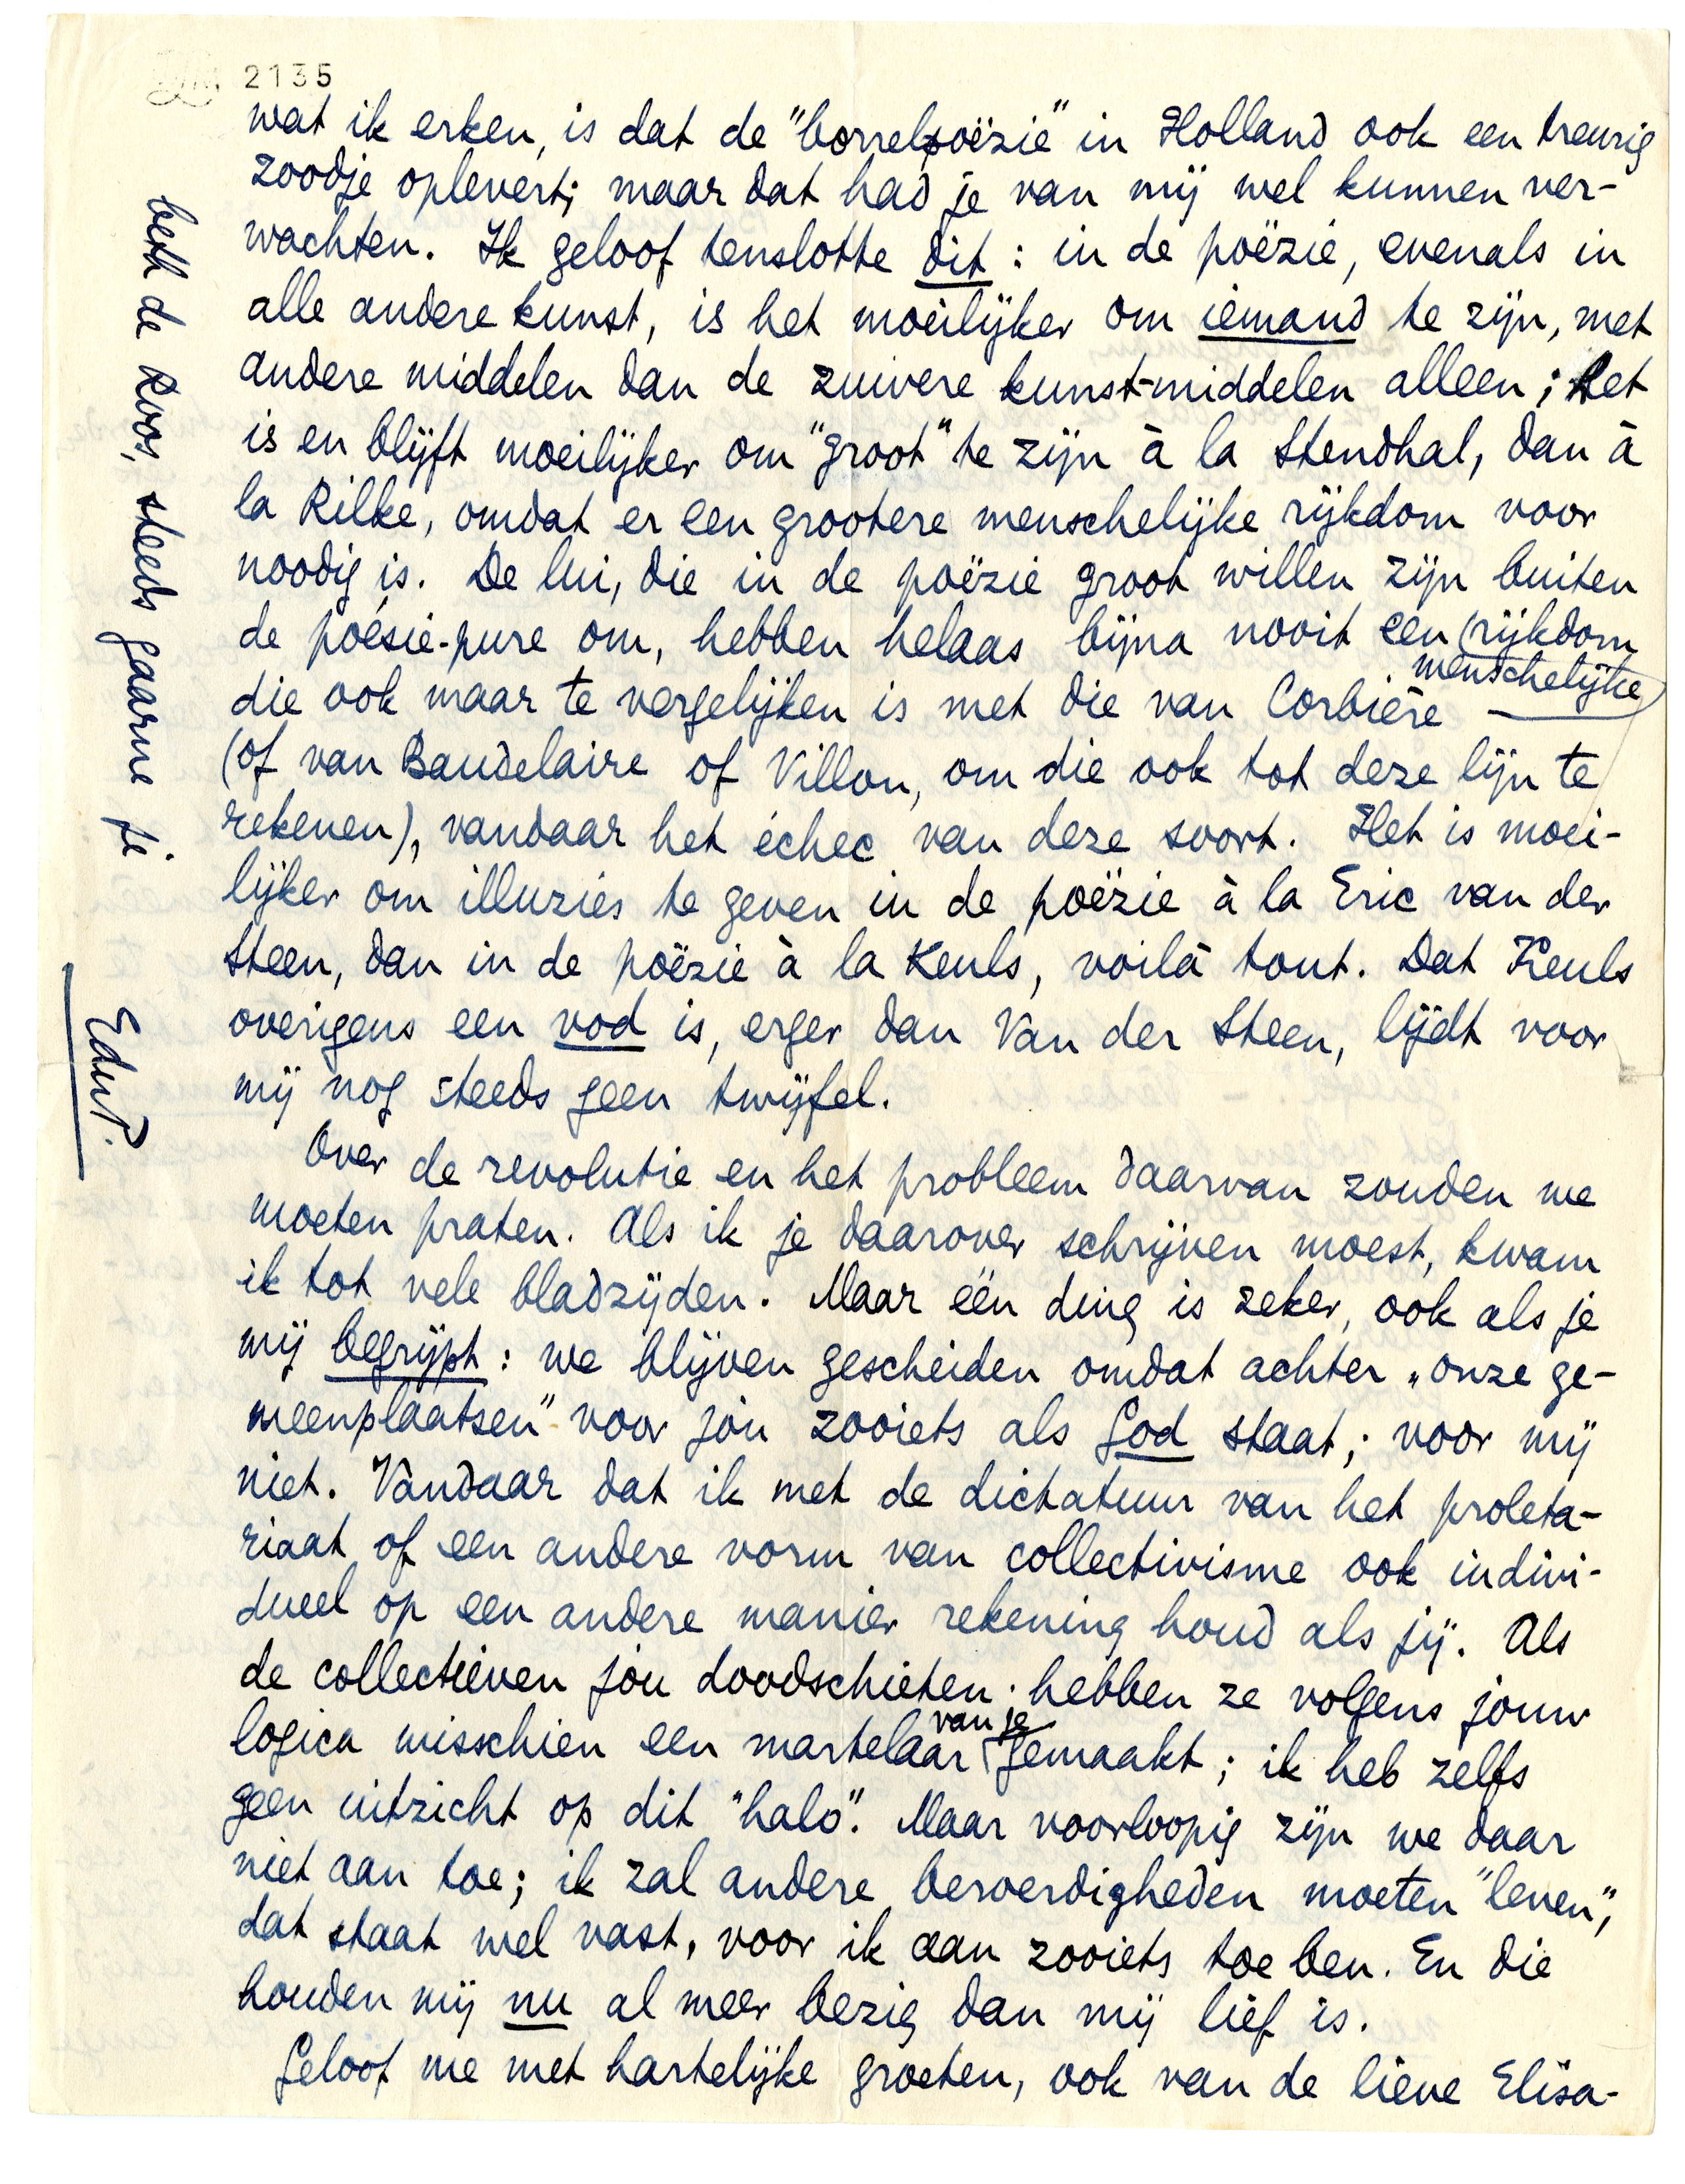 2135
wat ik erken, is dat de "borrelpoëzie" in Holland ook een treurig
zoodje oplevert; maar dat had je van mij wel kunnen ver-
wachten. Ik geloof tenslotte dit: in de poëzie, evenals in
alle andere kunst, is het moeilijker om iemand te zijn, met
andere middelen dan de zuivere kunst-middelen alleen; het
is en blijft moeilijker om "groot" te zijn à la Stendhal, dan à
la Rilke, omdat er een grootere menschelijke rijkdom voor
noodig is. De lui, die in de poëzie groot willen zijn buiten
de poésie-pure om, hebben helaas bijna nooit een rijkdom
menschelijke
die ook maar te vergelijken is met die van Corbière —
(of van Baudelaire of Villon, om die ook tot deze lijn te
rekenen), vandaar het échec van deze soort. Het is moei-
lijker om illuzies te geven in de poëzie à la Eric van der
Steen, dan in de poëzie à la Keuls, voilà tout. Dat Keuls
overigens een vod is, erger dan Van der Steen, lijdt voor
mij nog steeds geen twijfel.
Over de revolutie en het probleem daarvan zouden we
moeten praten. Als ik je daarover schrijven moest, kwam
ik tot vele bladzijden. Maar één ding is zeker, ook als je
mij begrijpt: we blijven gescheiden omdat achter „onze ge-
meenplaatsen" voor jóu zooiets als God staat; voor mij
niet. Vandaar dat ik met de dictatuur van het proleta-
riaat of een andere vorm van collectivisme ook indivi-
dueel op een andere manier rekening houd als jij. Als
de collectieven jou doodschieten, hebben ze volgens jouw
van je
logica misschien een martelaar gemaakt; ik heb zelfs
geen uitzicht op dit "halo". Maar voorloopig zijn we daar
niet aan toe; ik zal andere beroerdigheden moeten "leven",
dat staat wel vast, voor ik aan zooiets toe ben. En die
houden mij nu al meer bezig dan mij lief is.
Geloof me met hartelijke groeten, ook van de lieve Elisa-
beth de Roos, steeds gaarne je
EduP.